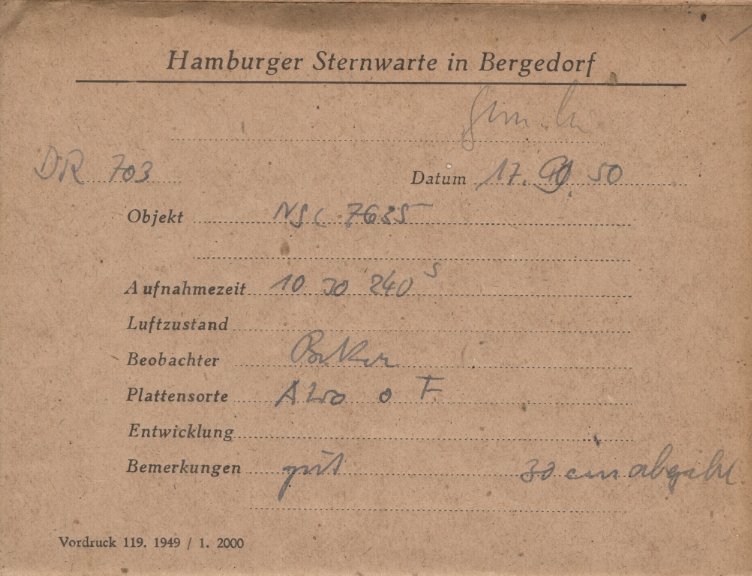 Hamburger Sternwarte in Bergedorf
DR 703
Datum 17. 50
Objekt 7635
Aufnahmezeit 10 30 240 s
Luftzustand
Beobachter
Plattensorte o F
Entwicklung
Bemerkungen gut 30 cm
Vordruck 119. 1949 / 1. 2000